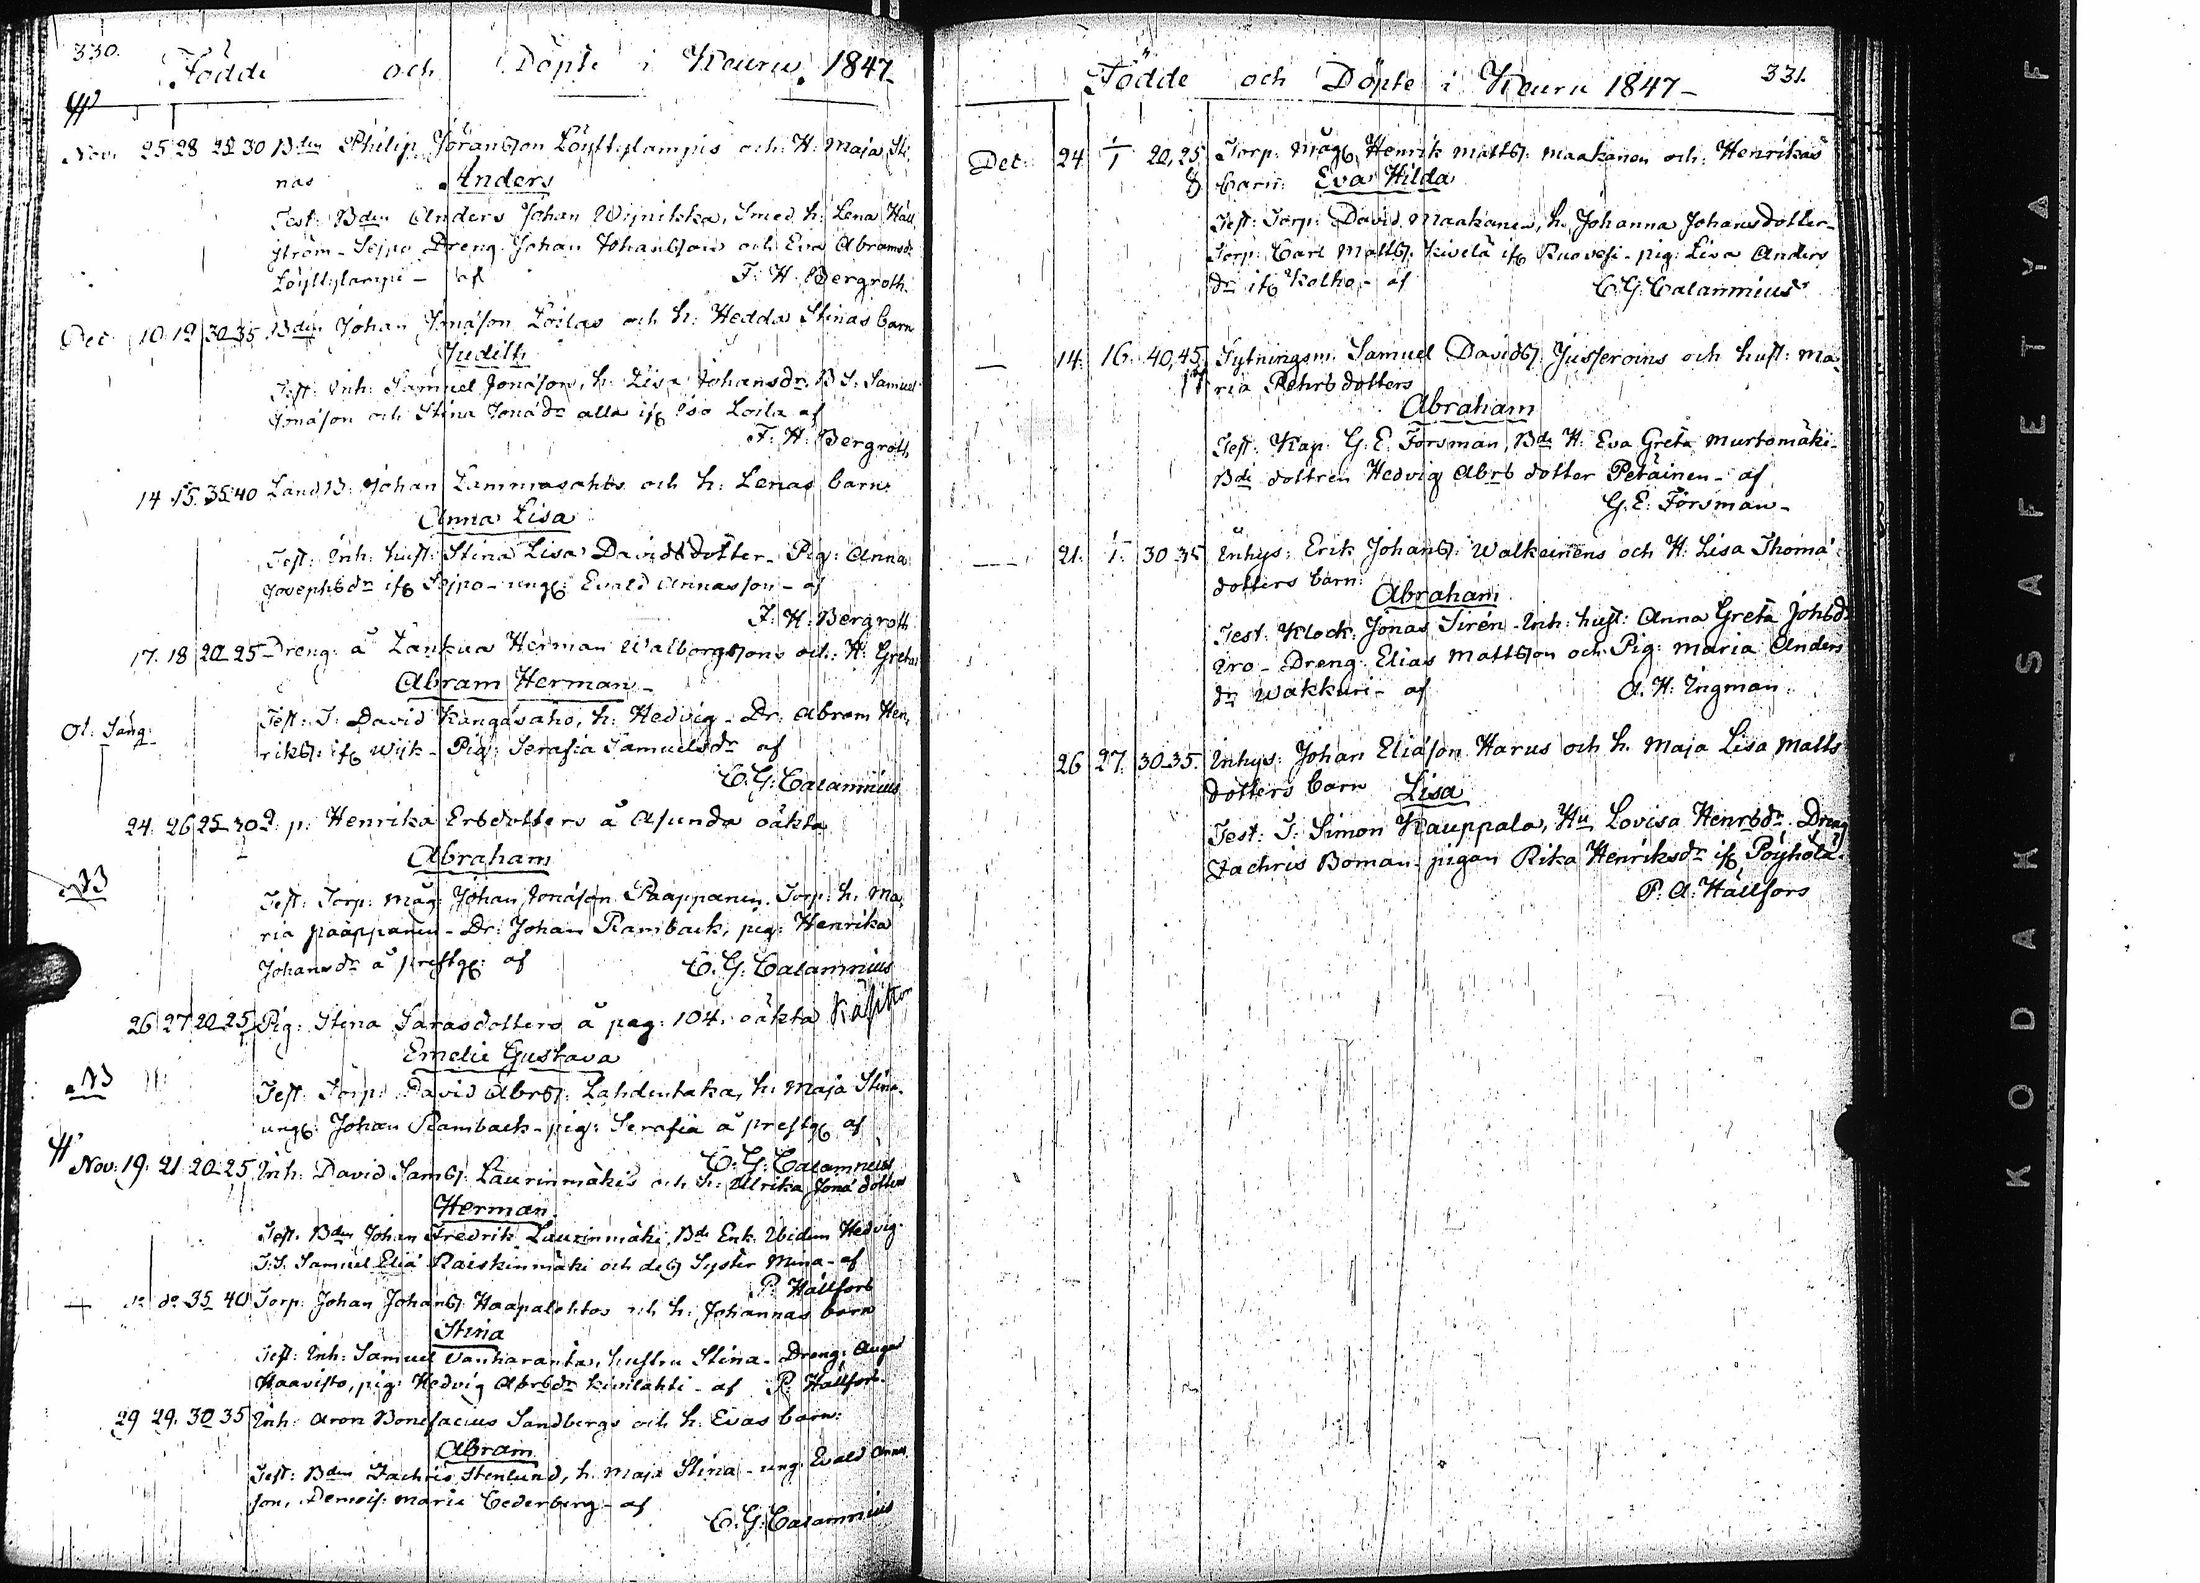 330.
Födde och Döpte i Keuru 1847
Nov. 25 28 25 30 Bden Philip Jöransson Löyttylampis och H. Maja Sti
nas Anders
Test: Bden Anders Johan Wijnikka, Smed. h. Lena Häll
ström - Sejpo Dreng. Johan Johansson och Eva Abramsdr
Löyttylampi - af F. H. Bergroth.
Dec. 10 12 30 35 Bden Johan Jonasson Loilas och h: Hedda Stinas barn
Judith
Test: Inh: Samuel Jonasson, h: Lisa Johansdr. B.S. Samuel
Jonasson och Stina Jonædr alla ifr. Iso Loila af
F. H. Bergroth
14 15. 35 40 LandB: Johan Lammasahos och h: Lenas barn:
Anna Lisa
Test: Inh: hust: Stina Lisa Davidsdotter - Pig: Anna
Josephsdr ifr Sejpo - ungk: Evald Annasson - af
F. H. Bergroth
17. 18 20 25 Dreng: å Lankua Herman Walborgssons och H: Gretas
Abram Herman -
Test: T: David Kangasaho, h: Hedvig - Dr: Abram Hen
riks: ifr Wijk - Pig: Serafia Samuelsdr af
C. G. Calamnius
24. 26 25 30 p: Henrika Ersdotters å Asunda oäkta
Abraham
NB
Test: Torp: måg: Johan Jonasson Pääppänen. Torp: h. Ma
ria pääppänen - Dr: Johan Rambach, pig: Henrika
Johansdr å prestg: af C. G. Calamnius
26 27 20 25 Pig: Stina Sarasdotters å pag: 104. oäkta
Emelie Gustava
NB
Test: Torp: David Abrs: Lahdentaka, h: Maja Stina.
ungk: Johan Rambach - pig: Serafia å prestg af
C. G. Calamnius
Nov: 19. 21 20 25 Inh: David Sams: Laurinmäkis och h: Ulrika Jonædotters
Herman.
Test. Bden Johan Fredrik Laurinmäki, Bde Enk. Ibidem Hedvig.
T.S. Samuel Eliæ Raiskinmäki och dess Syster Mina - af
P: Hällfors
do do 35 40 Torp: Johan Johans: Haapalehtos och h: Johannas barn
Stina
Test: Inh: Samuel Vanharanta, hustru Stina - Dreng: Auga
Haavisto, pig: Hedvig Abrsdr Kivilahti - af P. Hällfors.
29 29. 30 35 Inh: Aron Bonefacius Sandbergs och h: Evas barn:
Abram
Test: Bden Zachris Stenlund, h. Maja Stina - ung. Evald Annas
son, Demois: Maria Cederberg - af
C. G. Calamnius
331.
Födde och Döpte i Keuru 1847 -
Dec: 24 1/1 20,25 Torp: måg Henrik Matts: Maakanen och: Henrikas
8 barn: Eva Hilda
Test: Torp: David Maakanen, h: Johanna Johansdotter -
Torp: Carl Matts: Kivelä ifr Ruovesi - pig: Lisa Anders
dr ifr Kolho - af C. G. Calamnius
14. 16. 40,45 Tytningsm. Samuel Davids: Jusseroins och hust: Ma
ria Pehrsdotters
Abraham
Test: Kap. G. E. Forsman, Bde H. Eva Greta Murtomäki -
Bde dottren Hedvig Abrs dotter Petäinen - af
G. E. Forsman -
21. 1. 30 35 Inhys: Erik Johans: Walkeinens och H: Lisa Thomæ
dotters barn:
Abraham
Test: Klock: Jonas Sirén - Inh: hust: Anna Greta Johsd.
Iro - Dreng: Elias Mattsson och Pig: Maria Anders
dr Wakkuri - af A. H. Ingman.
26 27. 30 35. Inhys: Johan Eliasson Harus och h. Maja Lisa Matts
dotters barn Lisa
Test: T: Simon Kauppala, Hu Lovisa Henrsdr. Dreng
Zachris Boman - pigan Rika Henriksdr ifr Pöyhölä.
P. A. Hällfors
KODAK · SAFETY A F